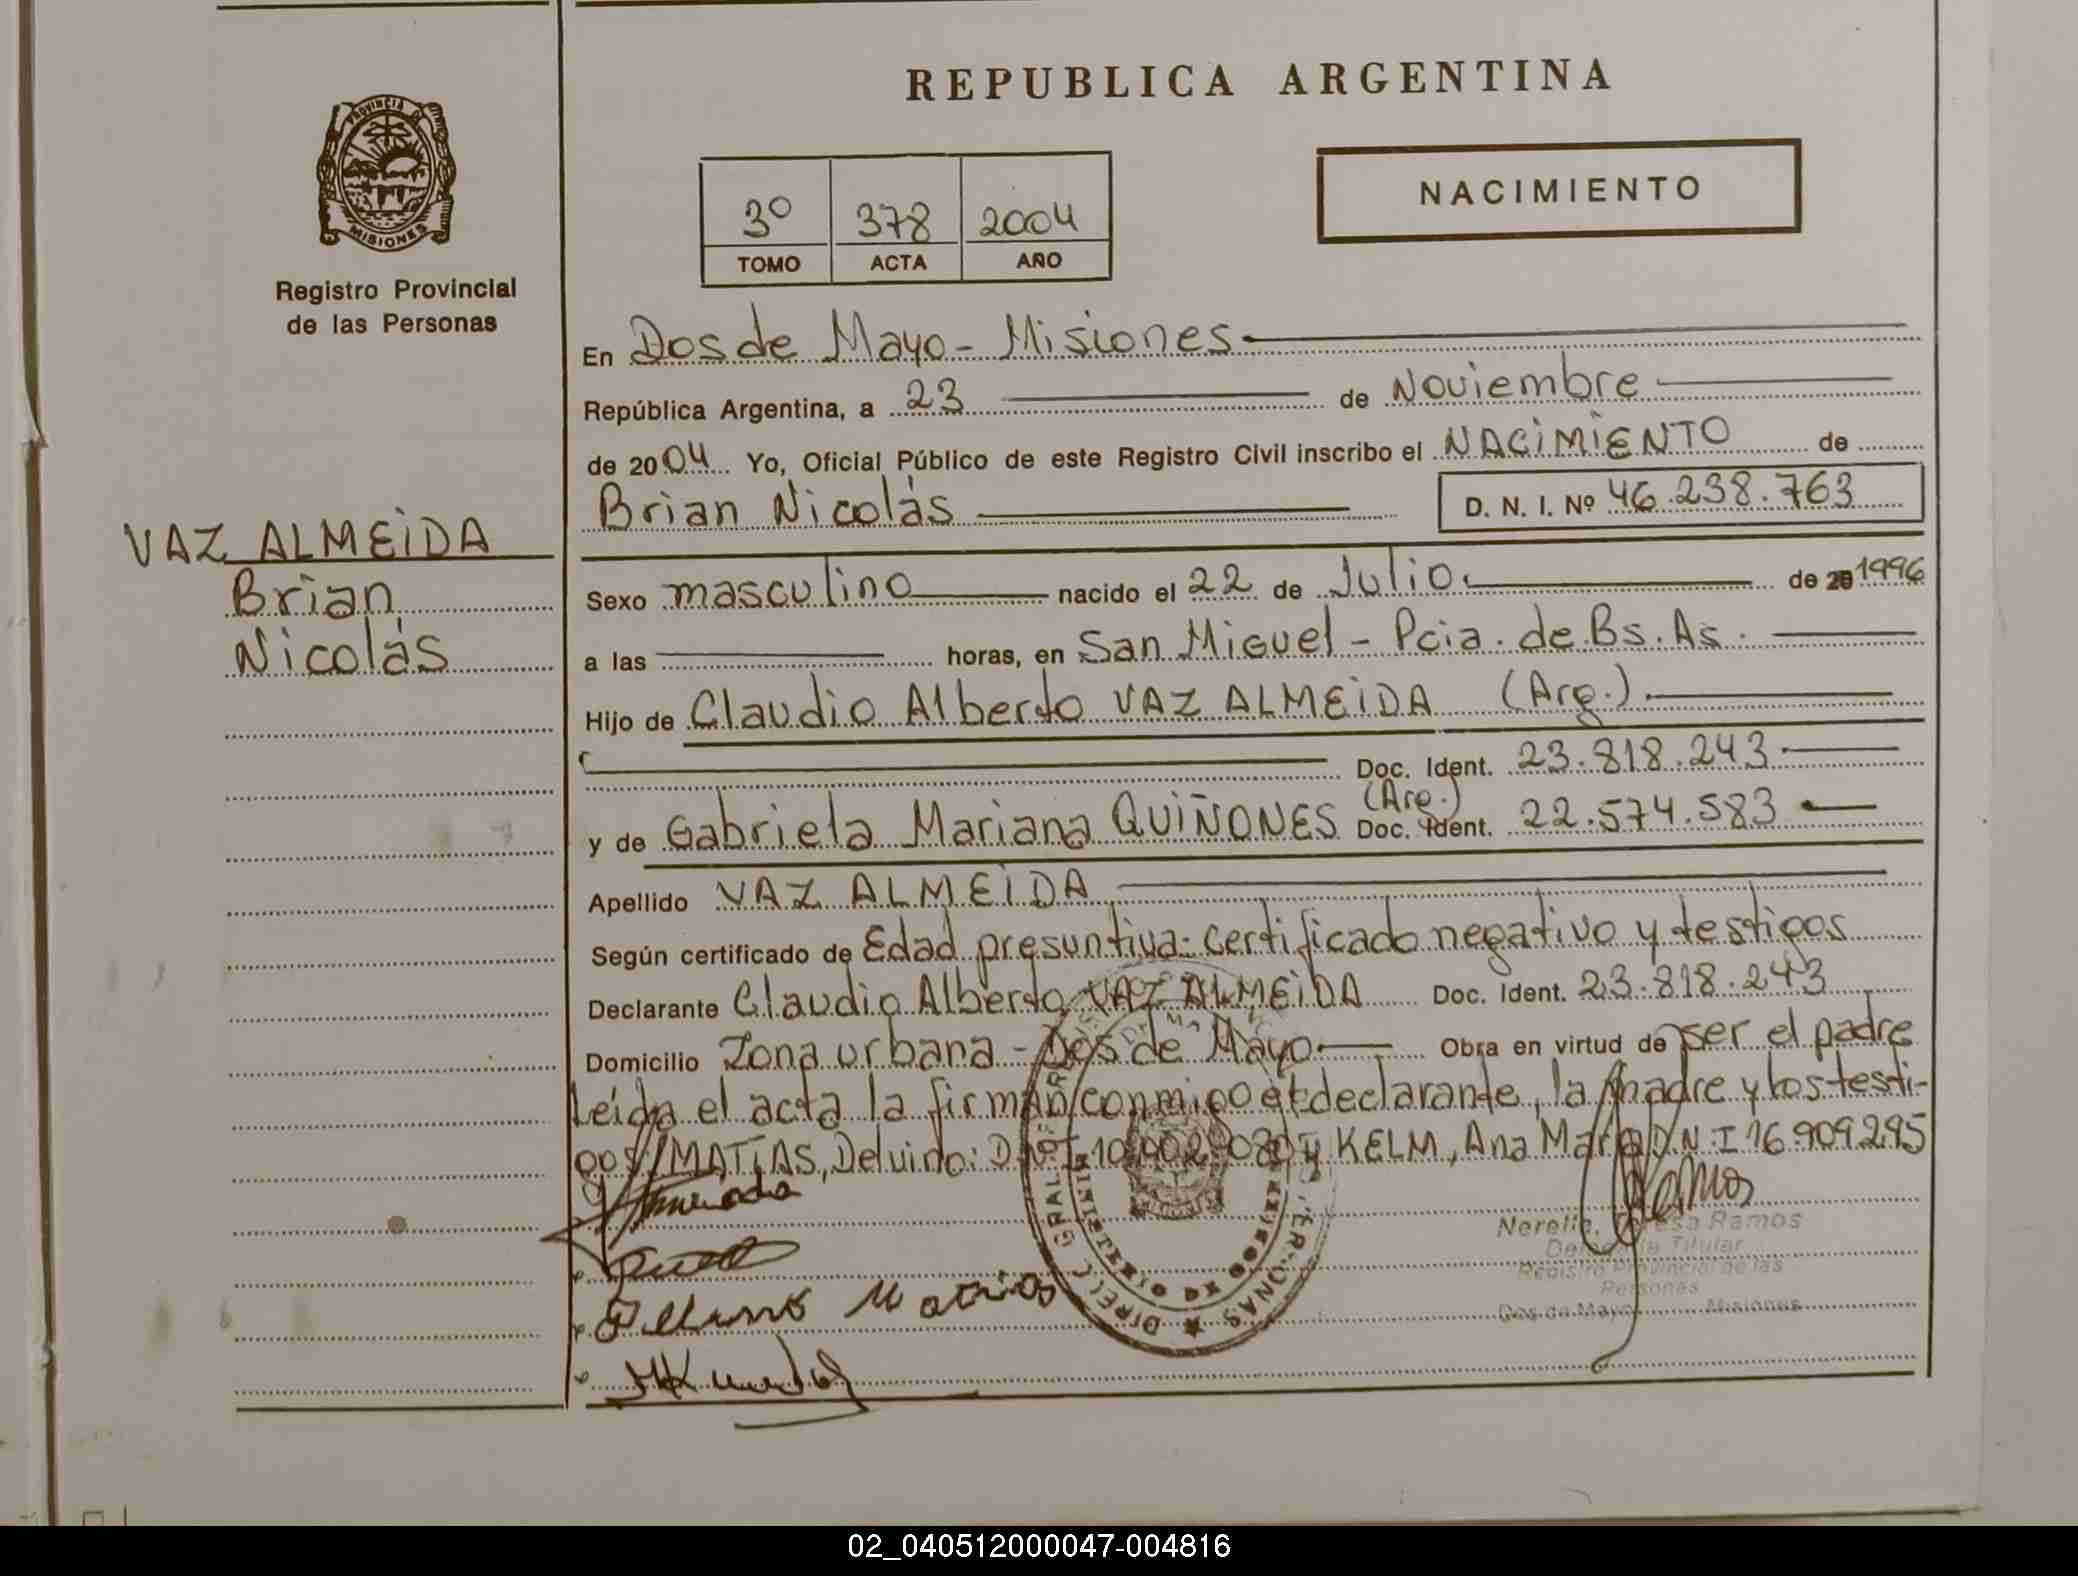 REPUBLICA ARGENTINA
PROVINCIA DE
MISIONES
Registro Provincial
de las Personas
NACIMIENTO
3º 378 2004
TOMO ACTA AÑO
En Dos de Mayo - Misiones
República Argentina, a 23 de Noviembre
de 2004 Yo, Oficial Público de este Registro Civil inscribo el NACIMIENTO de
Brian Nicolás D. N. I. Nº 46.238.763
VAZ ALMEIDA
Brian
Nicolás
Sexo masculino nacido el 22 de Julio de 20 1996
a las horas, en San Miguel - Pcia. de Bs. As.
Hijo de Claudio Alberto VAZ ALMEIDA (Arg.)
Doc. Ident. 23.818.243
(Arg.)
y de Gabriela Mariana QUIÑONES Doc. Ident. 22.574.583
Apellido VAZ ALMEIDA
Según certificado de Edad presuntiva: certificado negativo y testigos
Declarante Claudio Alberto VAZ ALMEIDA Doc. Ident. 23.818.243
Domicilio Zona urbana - Dos de Mayo Obra en virtud de ser el padre
Leída el acta la firman conmigo el declarante, la madre y los testi-
gos MATIAS, Delvino: y KELM, Ana María D.N.I 16.909.295
Ramos
Teresa Ramos
Titular
Registro Provincial de las
Personas
Dos de Mayo Misiones
02_040512000047-004816